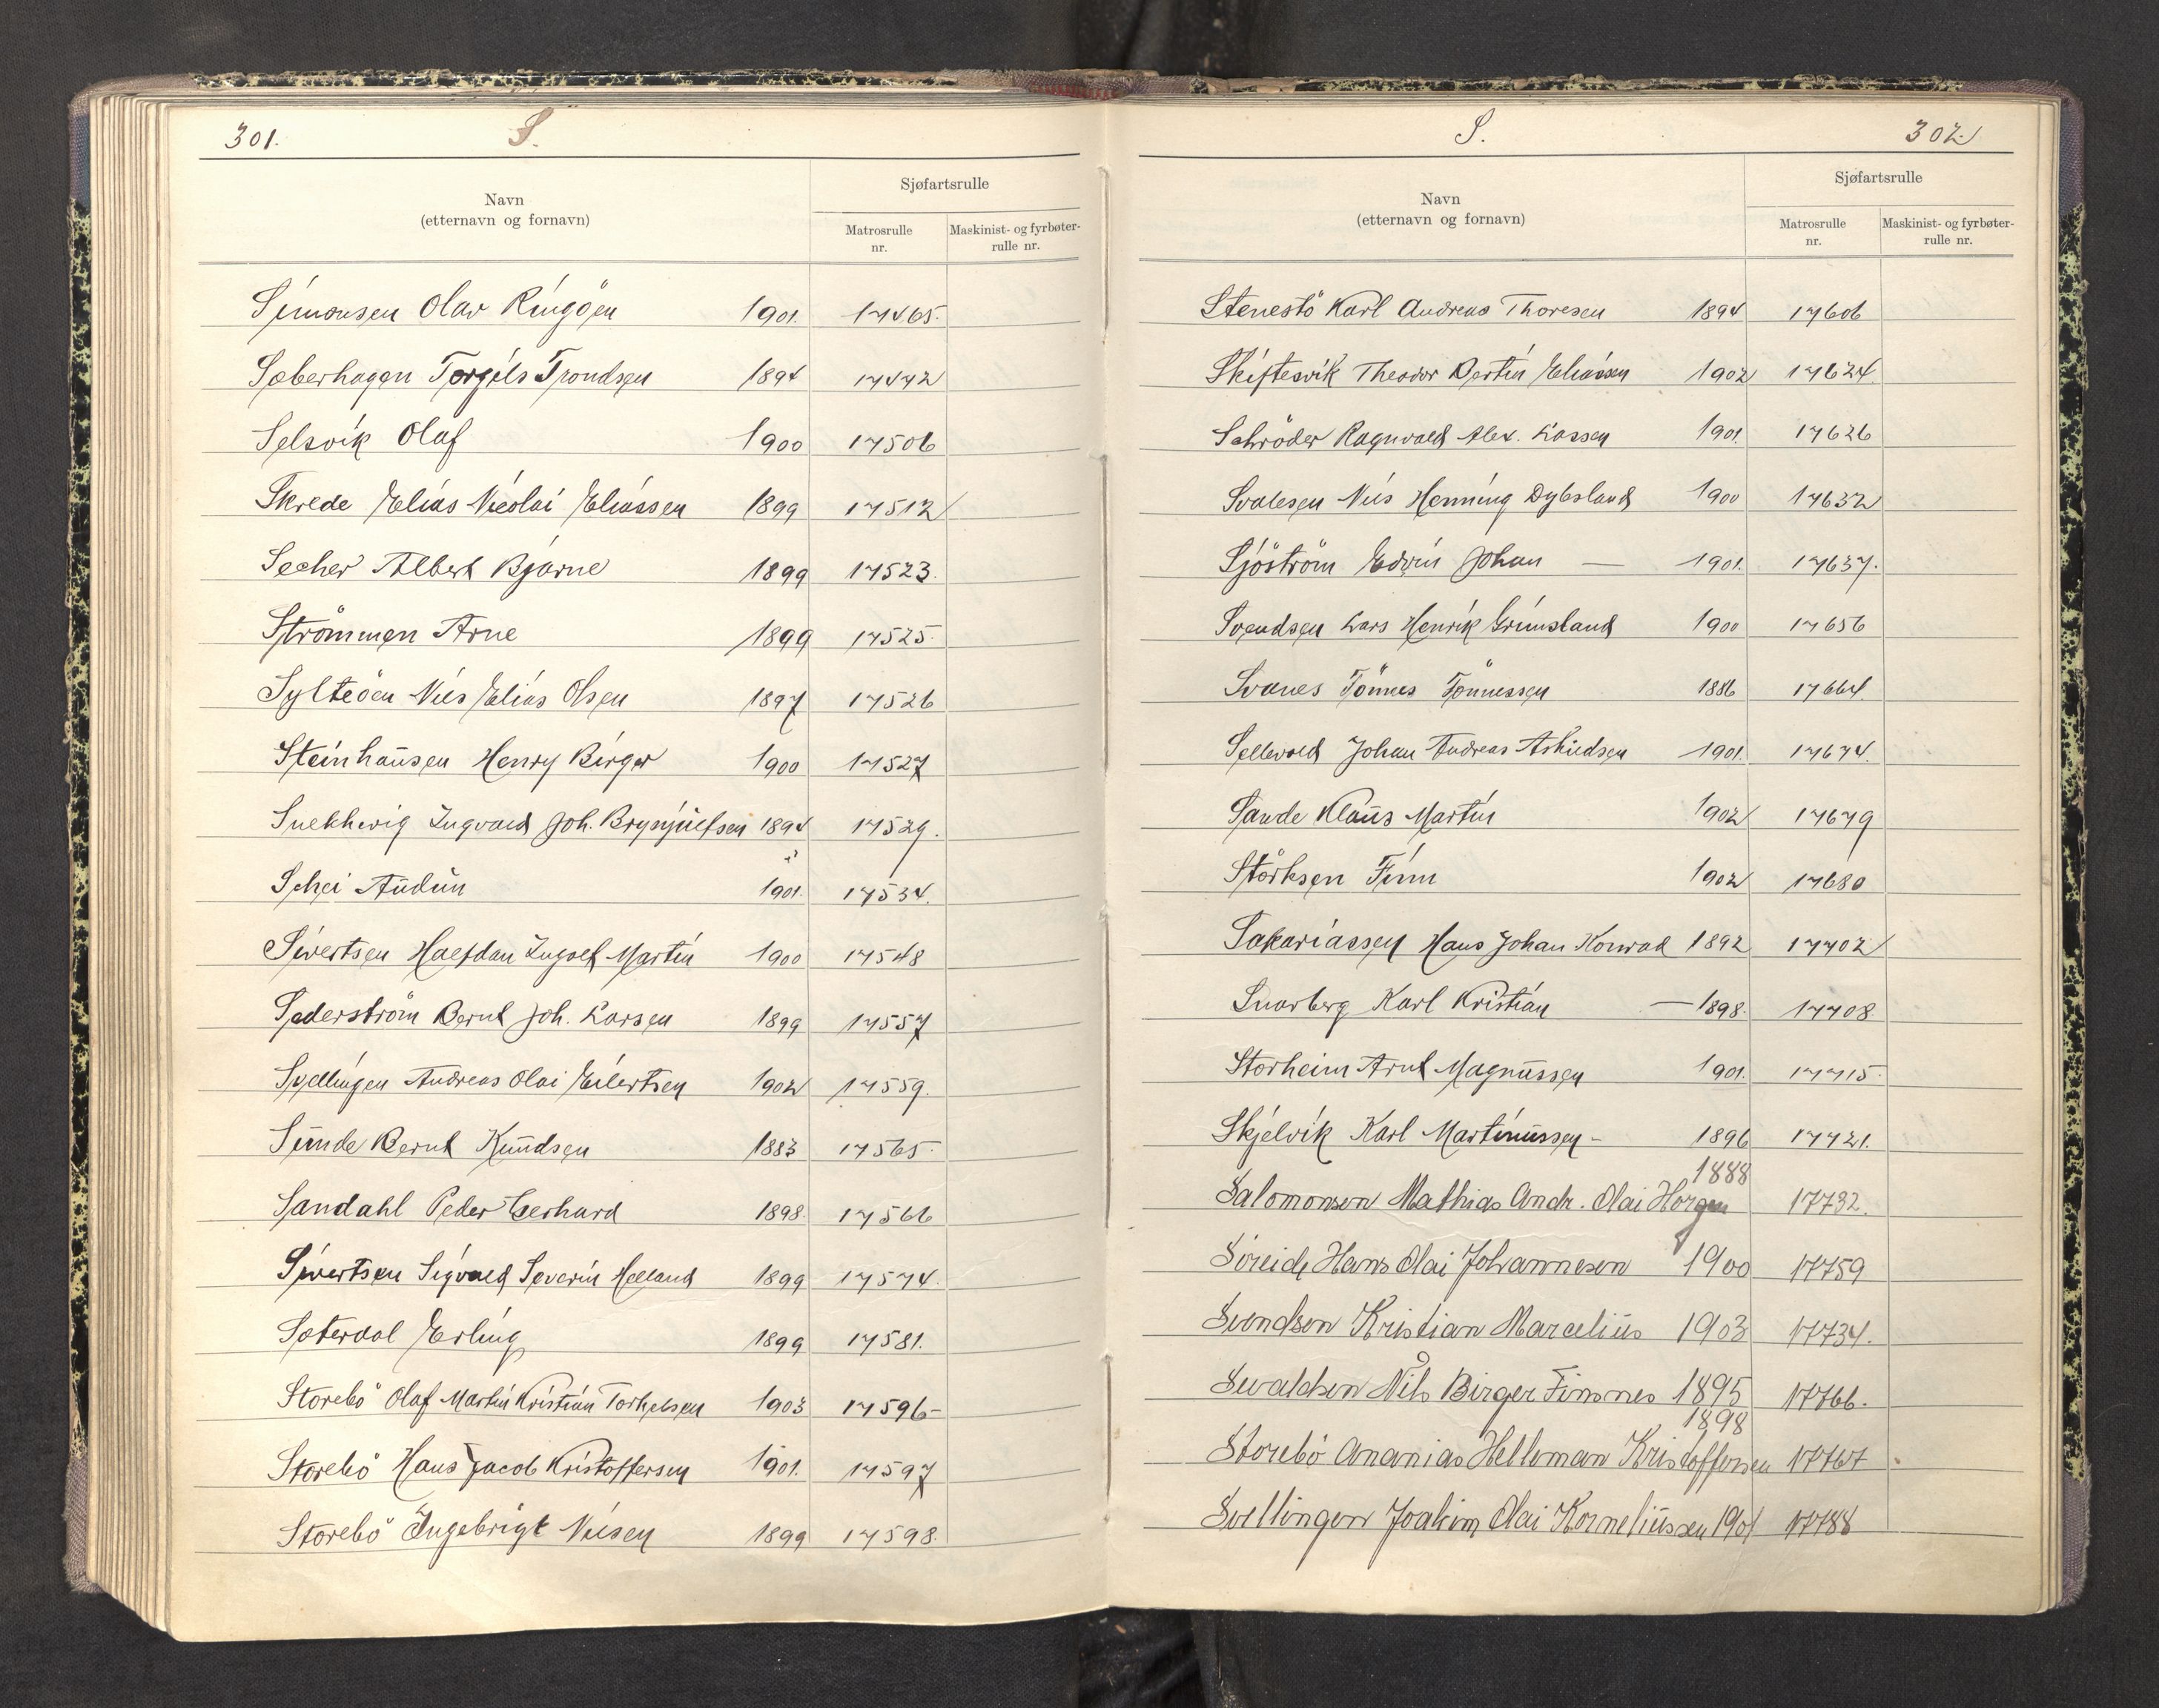 301.
S.
Navn
(etternavn og fornavn)
Sjøfartsrulle
Matrosrulle nr.
Maskinist- og fyrbøter-rulle nr.
Simonsen Olav Ringöen 1901. 17465.
Sæberhagen Torgils Trondsen 1894 17472
Selsvik Olaf 1900 17506
Skrede Elias Nicolai Eliassen 1899 17512
Secher Albert Bjarne 1899 17523.
Strömmen Arne 1899 17525.
Sylteöen Nils Elias Olsen 1897 17526
Steinhaŭsen Henry Birger 1900 17527
Snekkevig Ingvald Joh. Brynjŭlfsen 1894 17529.
Schei Aŭdŭn 1901. 17534.
Sivertsen Halfdan Ingolf Martin 1900 17548
Sederström Bernt Joh. Larsen 1899 17557
Svellingen Andreas Olai Eilertsen 1902 17559.
Sŭnde Bernt Knŭdsen 1883 17565.
Sandahl Peder Gerhard 1898. 17566
Sivertsen Sigvald Severin Helland 1899 17574.
Sæterdal Erling 1899 17581.
Storebö Olaf Martin Kristian Torkelsen 1903 17596-
Storebö Hans Jacob Kristoffersen 1901. 17597
Storebö Ingebrigt Nilsen 1899 17598.
S.
302
Navn
(etternavn og fornavn)
Sjøfartsrulle
Matrosrulle nr.
Maskinist- og fyrbøter-rulle nr.
Stenestö Karl Andreas Thoresen 1894 17606
Skiftesvik Theodor Bertin Eliassen 1902 17624.
Schröder Ragnvald Alex. Lassen 1901. 17626
Svalesen Nils Henning Dybsland 1900 17632
Sjöström Edvin Johan — 1901. 17637.
Svendsen Lars Henrik Grimsland 1900 17656
Svanes Tönnes Tönnessen 1886 17664.
Sellevold Johan Andreas Askildsen 1901. 17674.
Sande Klaŭs Martin 1902 17679
Störksen Finn 1902 17680
Sakariassen Hans Johan Konrad 1892 17702
Snarberg Karl Kristian — 1898. 17708
Storheim Arnt Magnŭssen 1901. 17715.
Skjelvik Karl Martinŭssen - 1896 17721.
1888
Salomonsen Mathias Andr. Olai Horgen 17732.
Söreide Hans Olai Johannesen 1900 17759
Svendsen Kristian Marceliŭs 1903 17734.
Sevaldsen Nils Birger Finsnes 1895 17766.
1898
Storebö Ananias Helleman Kristoffersen 17767
Svellingen Joakim Olai Korneliŭssen 1901 17788